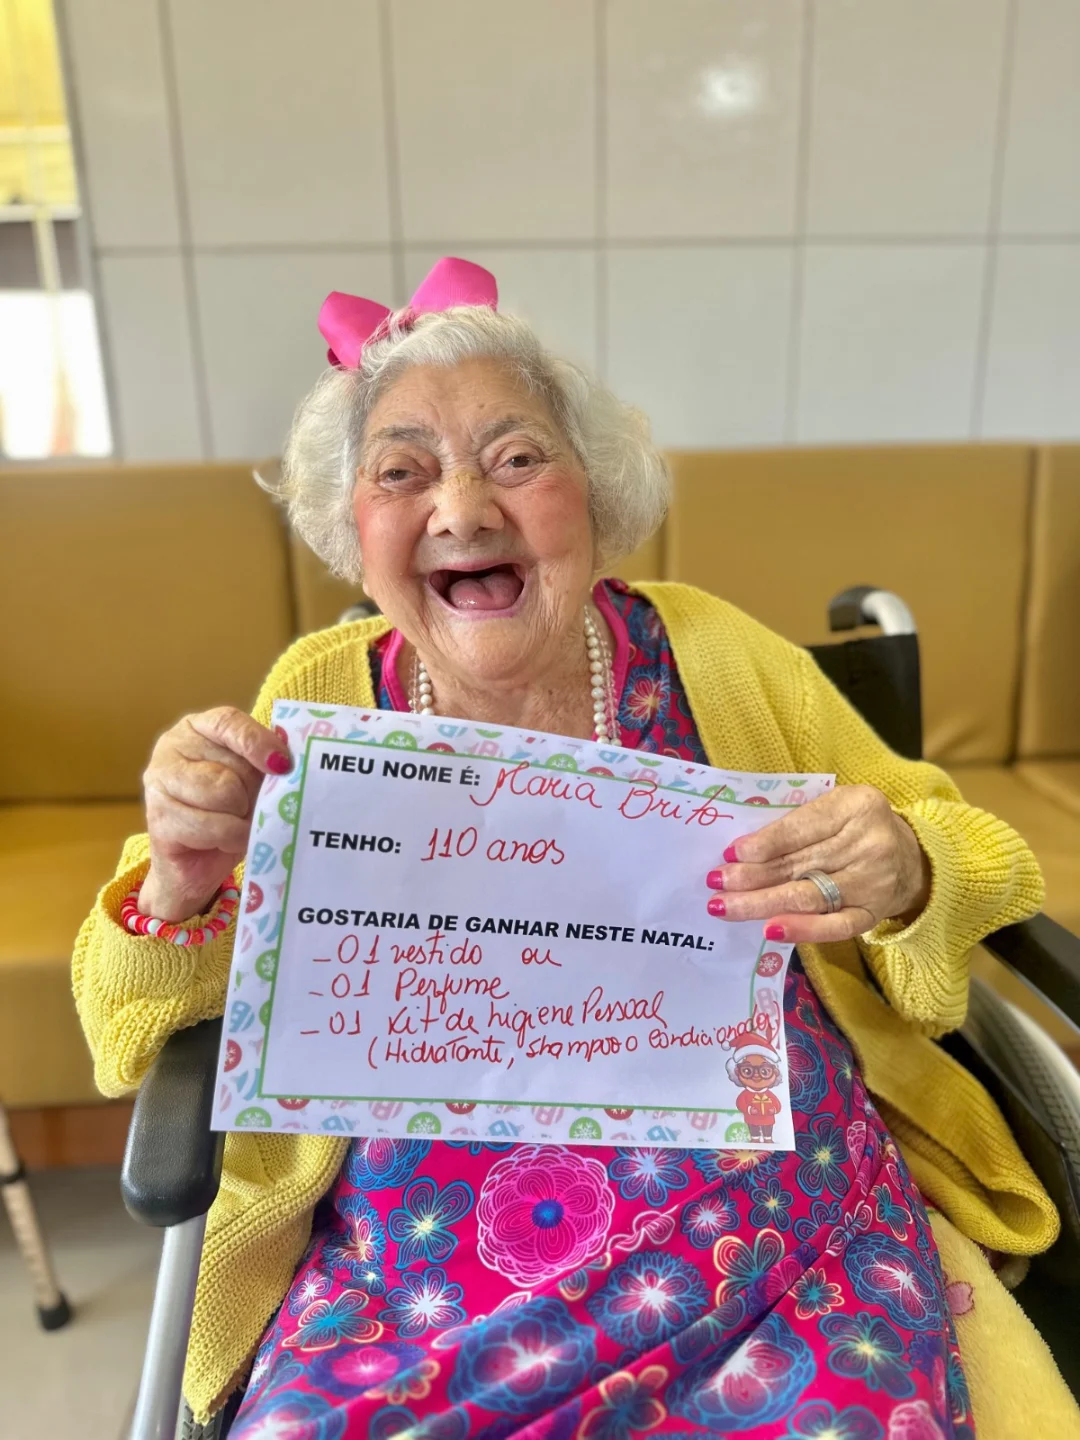 MEU NOME É: Maria Brito
TENHO: 110 anos
GOSTARIA DE GANHAR NESTE NATAL:
_ 01 vestido ou
_ 01 Perfume
_ 01 Kit de higiene Pessoal
(Hidratante, Shampoo condicionador)